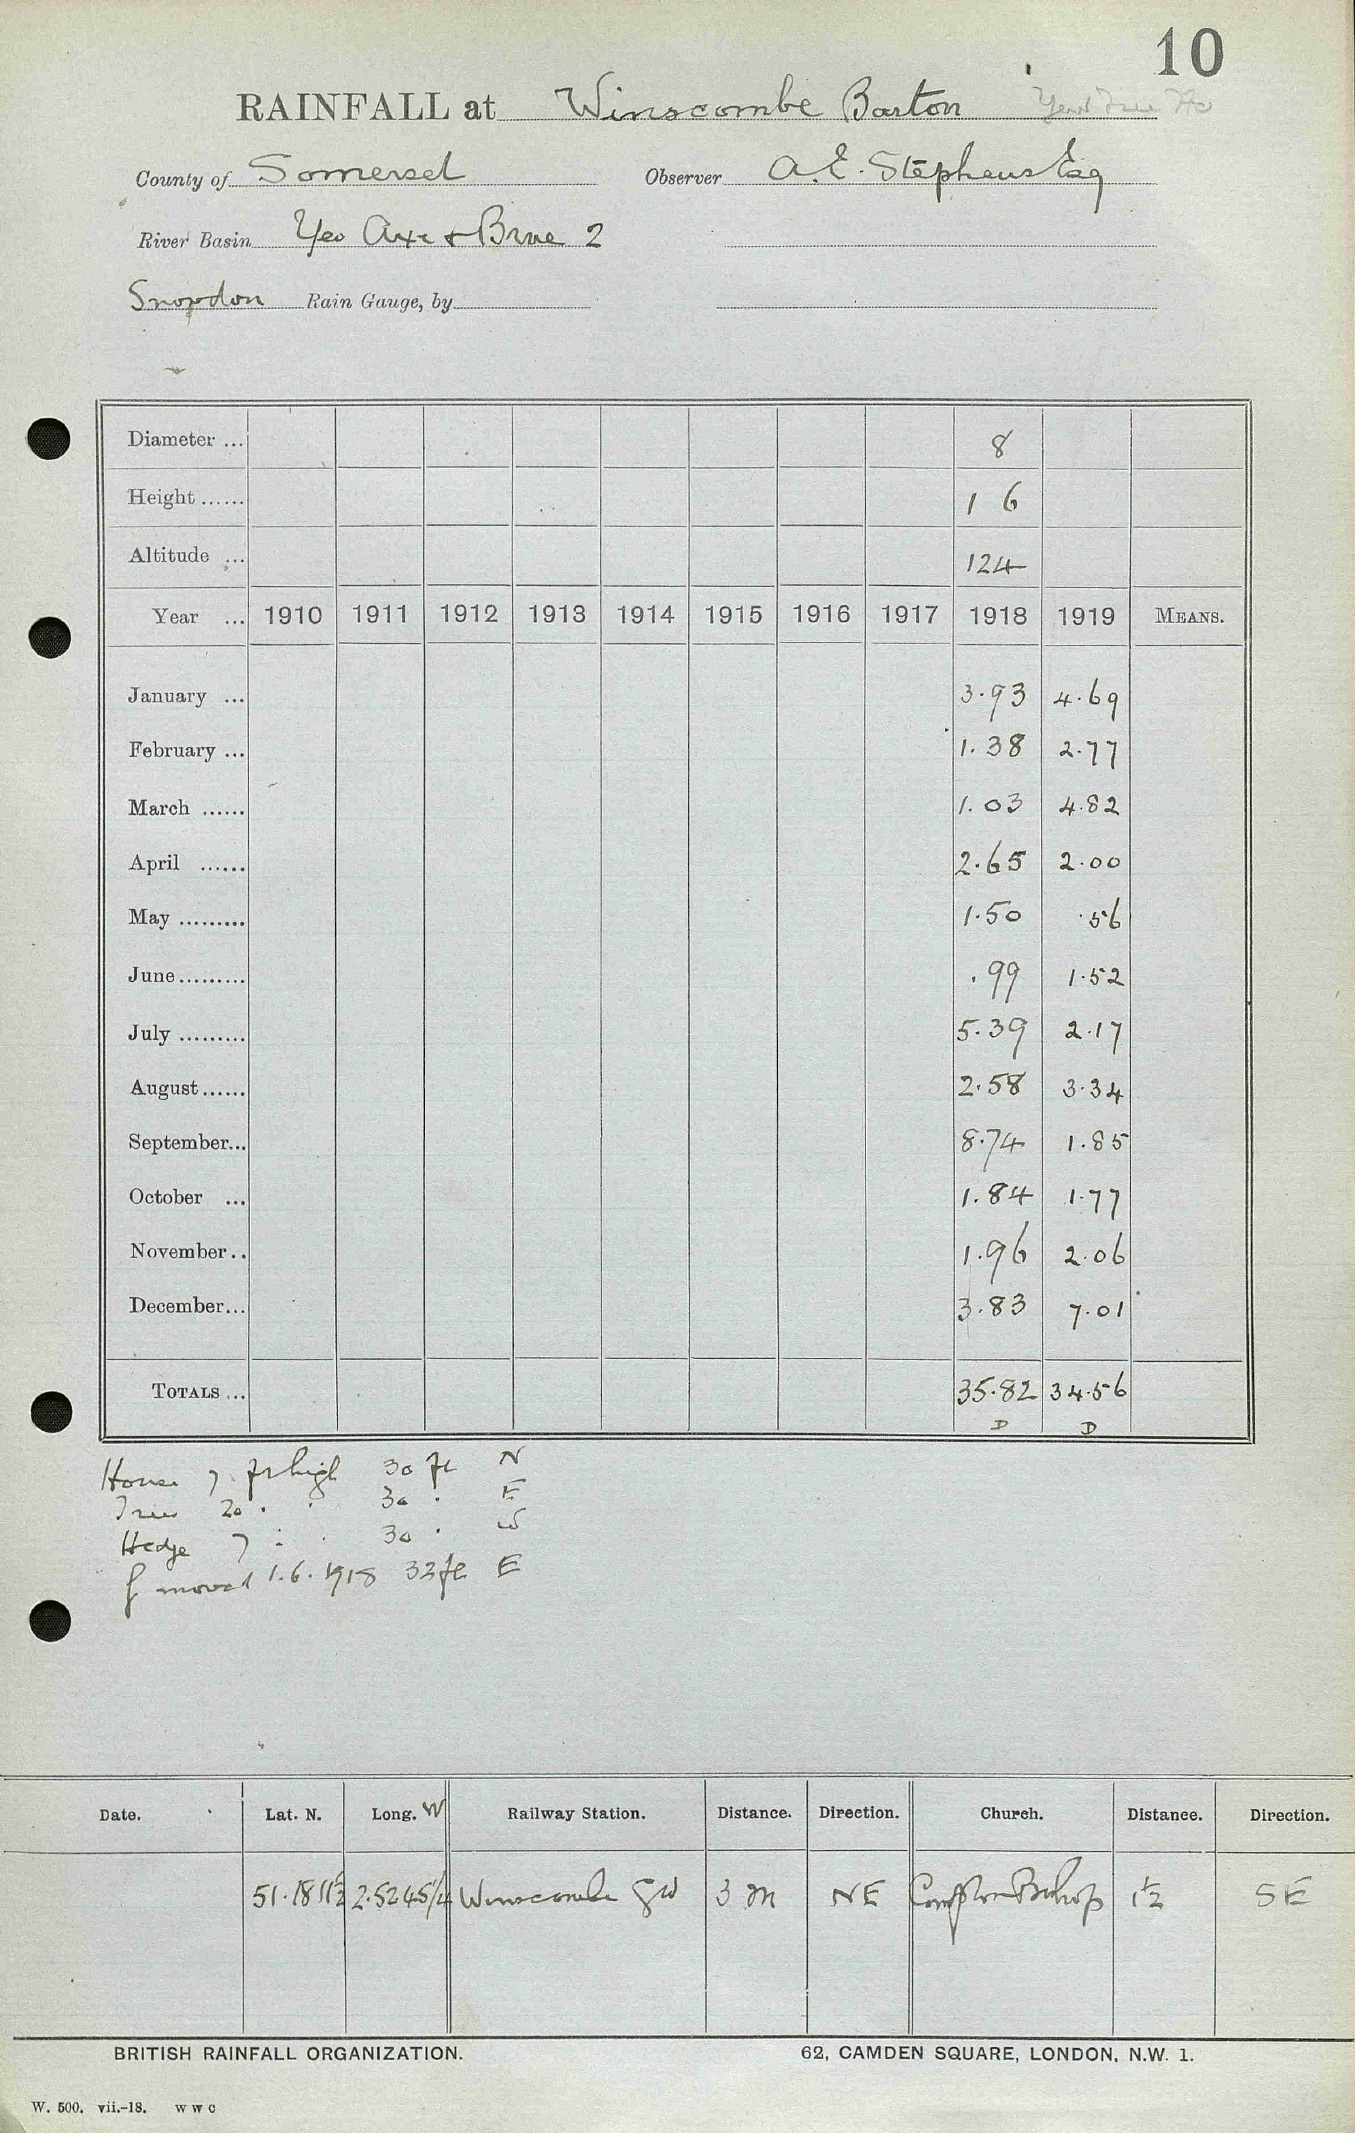 10
RAINFALL at Winscombe Barton
County of Somerset Observer A.E. Stephens Esq
River Basin Yeo Axe & Brue 2
Snowdon Rain Gauge, by
Diameter ... 8
Height ...... 1 6
Altitude ... 124
Year ... 1910 1911 1912 1913 1914 1915 1916 1917 1918 1919 MEANS.
January ... 3.93 4.69
February ... 1.38 2.77
March ...... 1.03 4.82
April ...... 2.65 2.00
May ......... 1.50 .56
June ......... .99 1.52
July ......... 5.39 2.17
August ...... 2.58 3.34
September... 8.74 1.85
October ... 1.84 1.77
November.. 1.96 2.06
December... 3.83 7.01
TOTALS ... 35.82 34.56
D D
House 7 ft high 30 ft N
Tree 20 " " 30 " E
Hedge 7 " " 30 " W
moved 1.6.1918 32 ft E
Date. Lat. N. Long. W Railway Station. Distance. Direction. Church. Distance. Direction.
51.18 11½ 2.52 45¼ Winscombe GW 3 m NE Compton Bishop 1½ SE
BRITISH RAINFALL ORGANIZATION. 62, CAMDEN SQUARE, LONDON, N.W. 1.
W. 500. vii.-18. W W C